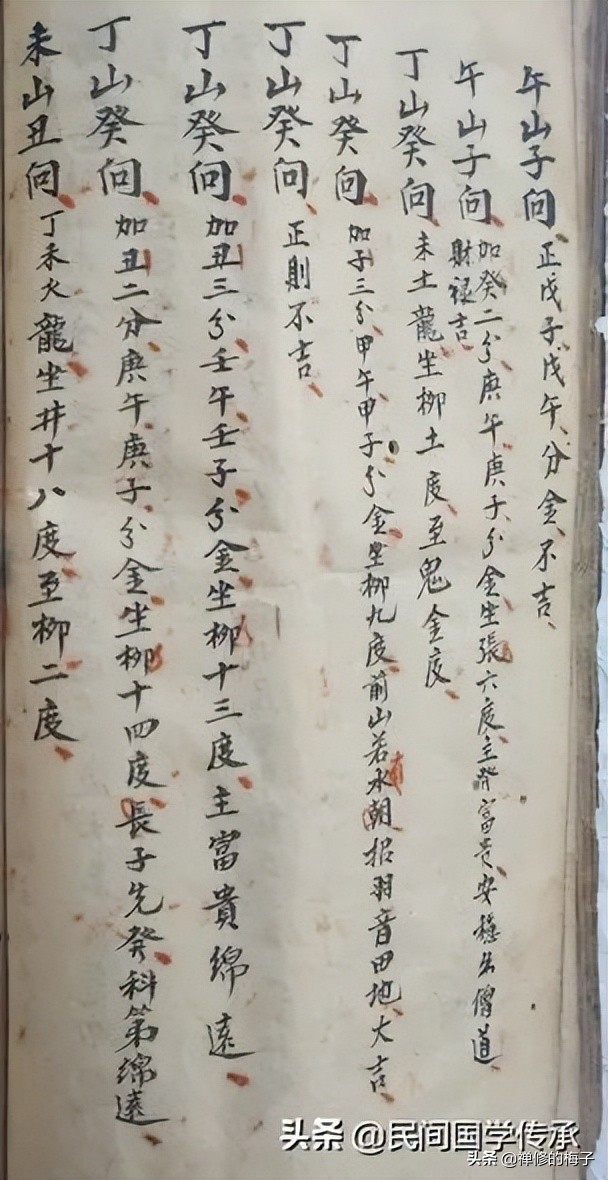 午山子向正戊子戊午分金不吉
午山子向加癸二分庚午庚子分金坐張六度主發富貴安穩出僧道
財禄吉
丁山癸向未土龍坐柳土度至鬼金度
丁山癸向加子三分甲午甲子分金坐柳九度前山若有水朝招羽音田地大吉
丁山癸向正則不吉
丁山癸向加丑三分壬午壬子分金坐柳十三度主富貴綿遠
丁山癸向加丑二分庚午庚子分金坐柳十四度長子先發科第綿遠
未山丑向丁未火龍坐井十八度至柳二度
头条 @民间国学传承
头条 @禅修的梅子